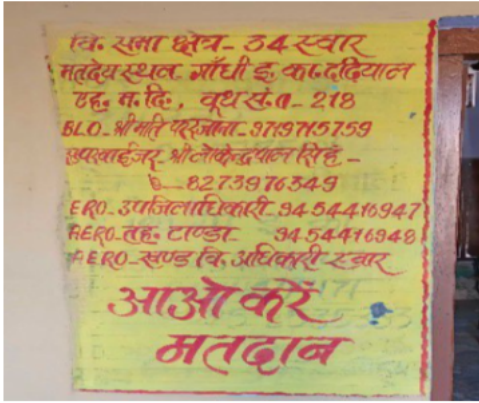 वि. सभा क्षेत्र- 34 स्वार
मतदेय स्थल- गाँधी इ. का. दढियाल
एह. म. दि., बूथ सं. - 218
BLO- श्रीमति परजाना- 9719715759
सुपरवाईजर- श्री लोकेन्द्रपाल सिंह-
8273976349
ERO- उपजिलाधिकारी 9454416947
AERO- तह. टाण्डा- 9454416948
AERO- खण्ड वि. अधिकारी स्वार
आओ करें
मतदान